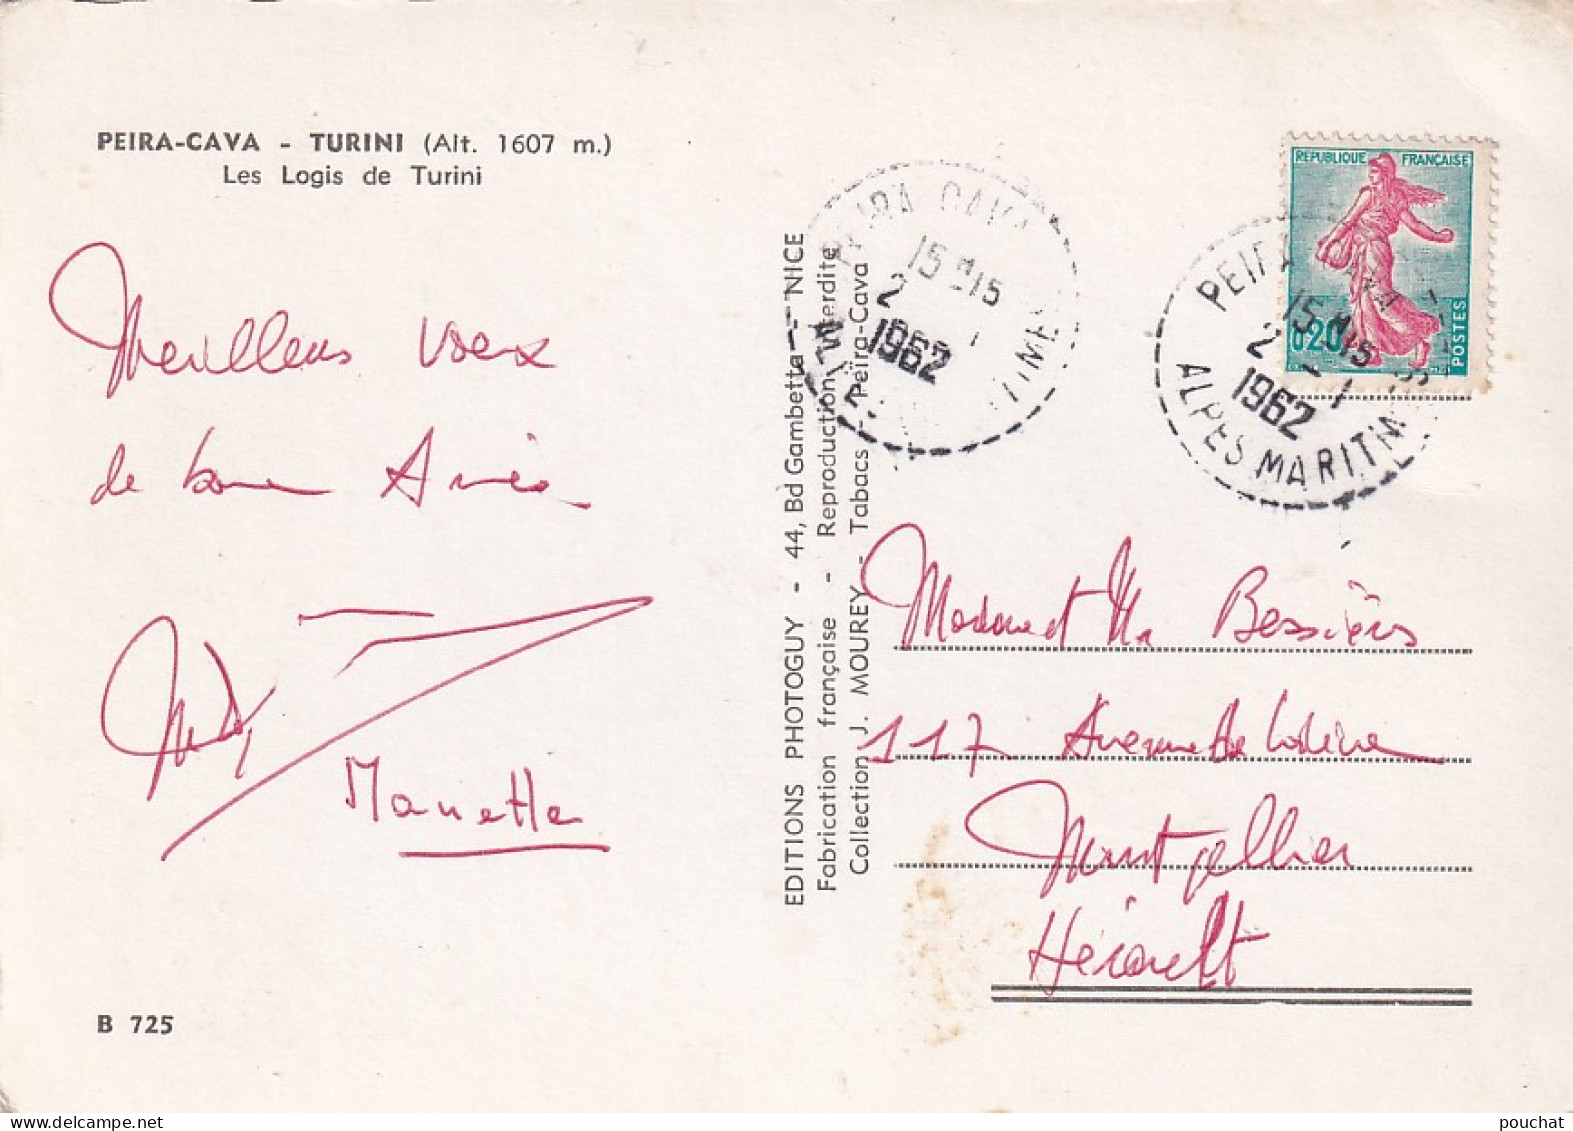 PEIRA-CAVA - TURINI (Alt. 1607 m.)
Les Logis de Turini
Meilleurs voeux
de bonne Année
Manette
B 725
EDITIONS PHOTOGUY - 44, Bd Gambetta - NICE
Fabrication française - Reproduction interdite
Collection J. MOUREY - Tabacs - Peïra-Cava
PEIRA CAVA
15 H 15
2 - 1
1962
ALPES MARITIMES
REPUBLIQUE FRANÇAISE
0,20
POSTES
PEIRA CAVA
15 H 15
2 - 1
1962
ALPES MARITIMES
Madame et Mr Bessière
117 Avenue de Lodève
Montpellier
Hérault
pouchat